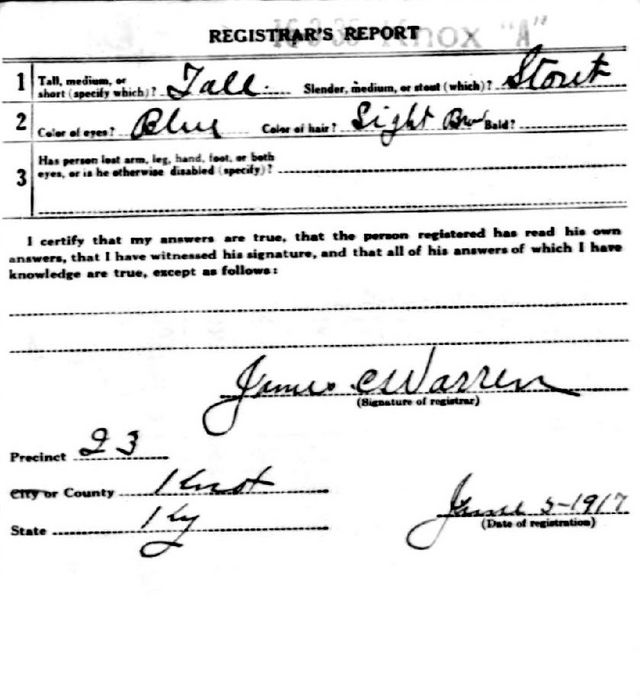 16-3-35 Knox "A"
REGISTRAR'S REPORT
1 Tall, medium, or short (specify which)? Tall. Slender, medium, or stout (which)? Stout
2 Color of eyes? Blue Color of hair? Light Brow Bald?
3 Has person lost arm, leg, hand, foot, or both
eyes, or is he otherwise disabled (specify)?
I certify that my answers are true, that the person registered has read his own
answers, that I have witnessed his signature, and that all of his answers of which I have
knowledge are true, except as follows:
James C Warren
(Signature of registrar)
Precinct 23
City or County Knox
State Ky
June 5-1917
(Date of registration)